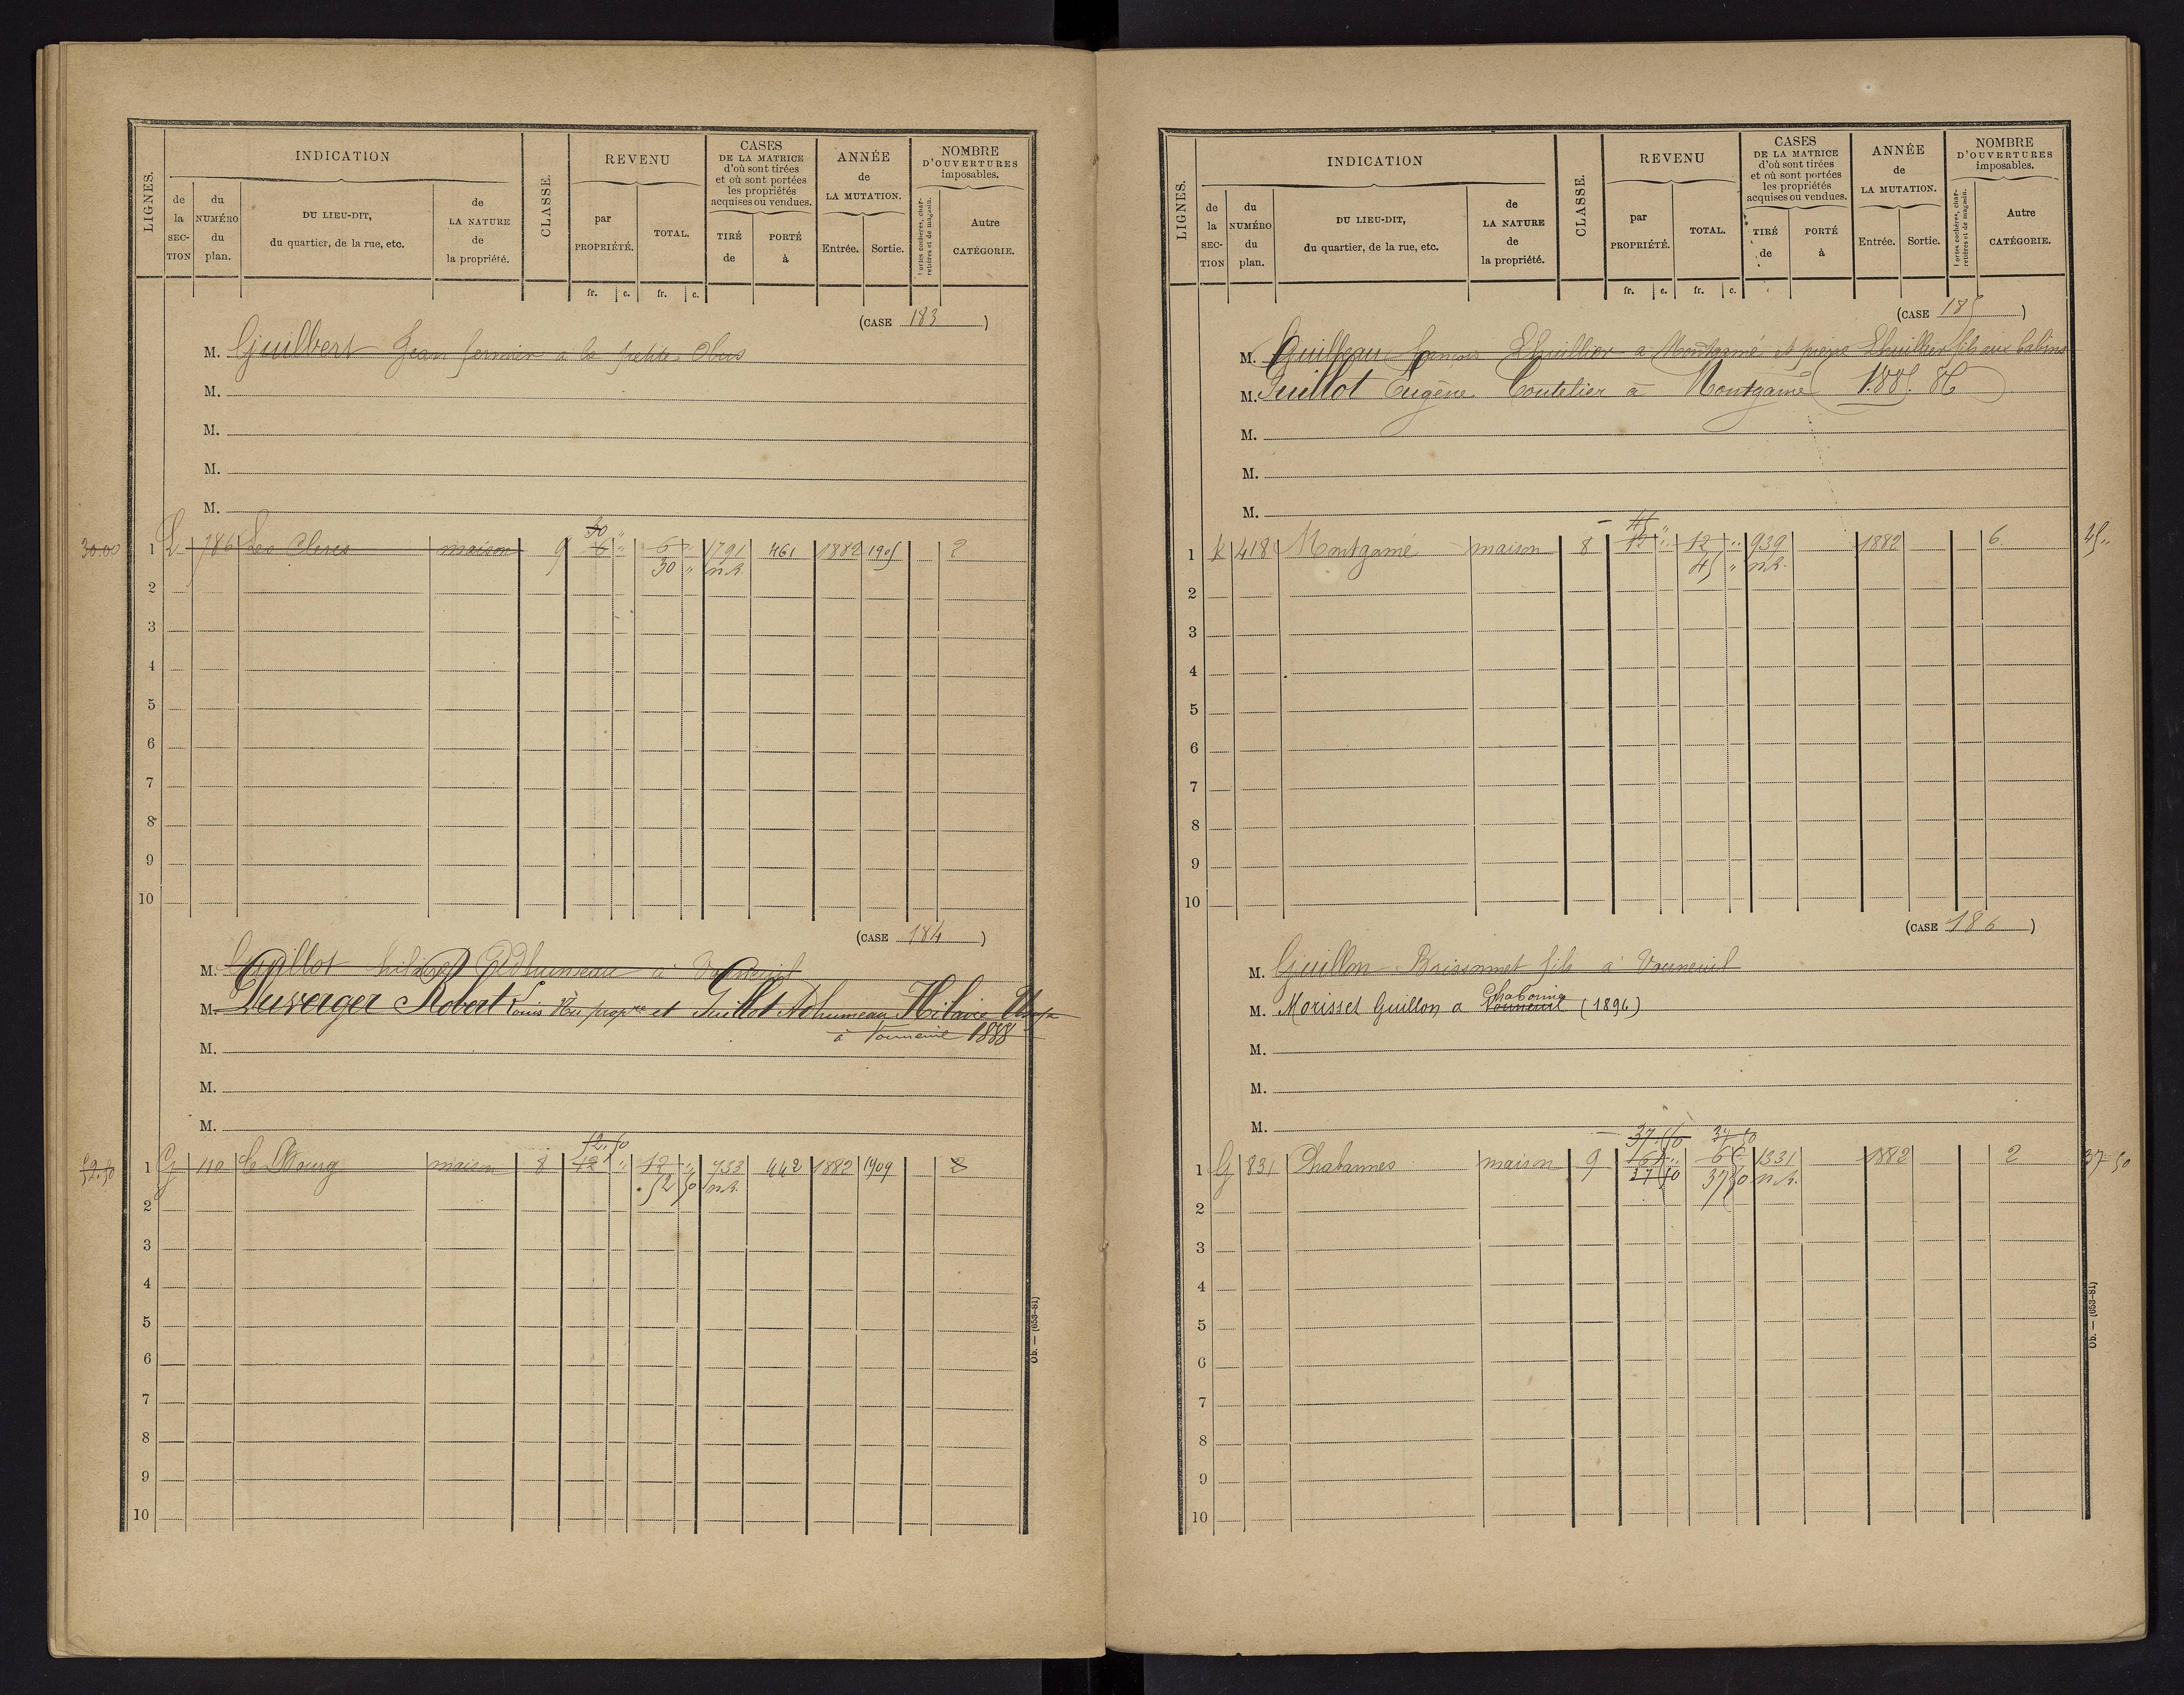 LIGNES.
INDICATION
de la SECTION
du NUMÉRO du plan.
DU LIEU-DIT, du quartier, de la rue, etc.
de LA NATURE de la propriété.
CLASSE.
REVENU
par PROPRIÉTÉ.
TOTAL.
fr. c. fr. c.
CASES DE LA MATRICE d'où sont tirées et où sont portées les propriétés acquises ou vendues.
TIRÉ de
PORTÉ à
ANNÉE de LA MUTATION.
Entrée. Sortie.
NOMBRE D'OUVERTURES imposables.
Portes cochères, charretières et de magasin.
Autre CATÉGORIE.
(CASE 183)
M. Guilbert Jean fermier a la petite
M.
M.
M.
M.
30
30.00 1 L 786 Les Clercs maison 9 6 " 6 " 1791 461 1882 1905 2
30 " n.c.
2
3
4
5
6
7
8
9
10
(CASE 184)
M. Guillot hilaire Adhumeau a Vouneuil
M. Duverger Robert Louis Nu propre et Guillot Adhumeau Hilaire
à Vouneuil 1888
M.
M.
M.
52.50
52.50 1 G 110 le Bourg maison 8 12 " 12 " 753 442 1882 1909 3
52 50 n.c.
2
3
4
5
6
7
8
9
10
Ob. — (653-81)
LIGNES.
INDICATION
de la SECTION
du NUMÉRO du plan.
DU LIEU-DIT, du quartier, de la rue, etc.
de LA NATURE de la propriété.
CLASSE.
REVENU
par PROPRIÉTÉ.
TOTAL.
fr. c. fr. c.
CASES DE LA MATRICE d'où sont tirées et où sont portées les propriétés acquises ou vendues.
TIRÉ de
PORTÉ à
ANNÉE de LA MUTATION.
Entrée. Sortie.
NOMBRE D'OUVERTURES imposables.
Portes cochères, charretières et de magasin.
Autre CATÉGORIE.
(CASE 185)
M. Guilleau françois Lhuillier a Montgamé et pierre Lhuillier fils aux babins
M. Guillot Eugène Coutelier à Montgamé 1885. 86
M.
M.
M.
45
1 K 418 Montgamé maison 8 12 " 12 " 939 1882 6. 45 "
45 " n.c.
2
3
4
5
6
7
8
9
10
(CASE 186)
M. Guillon Boissonnet fils a Vouneuil
Chabonne
M. Morisset Guillon a Vouneuil (1896)
M.
M.
M.
37.50 37 50
1 G 831 Chabannes maison 9 6 " 6 1331 1882 2 37 50
37 50 37 50 n.c.
2
3
4
5
6
7
8
9
10
Ob. — (653-81)